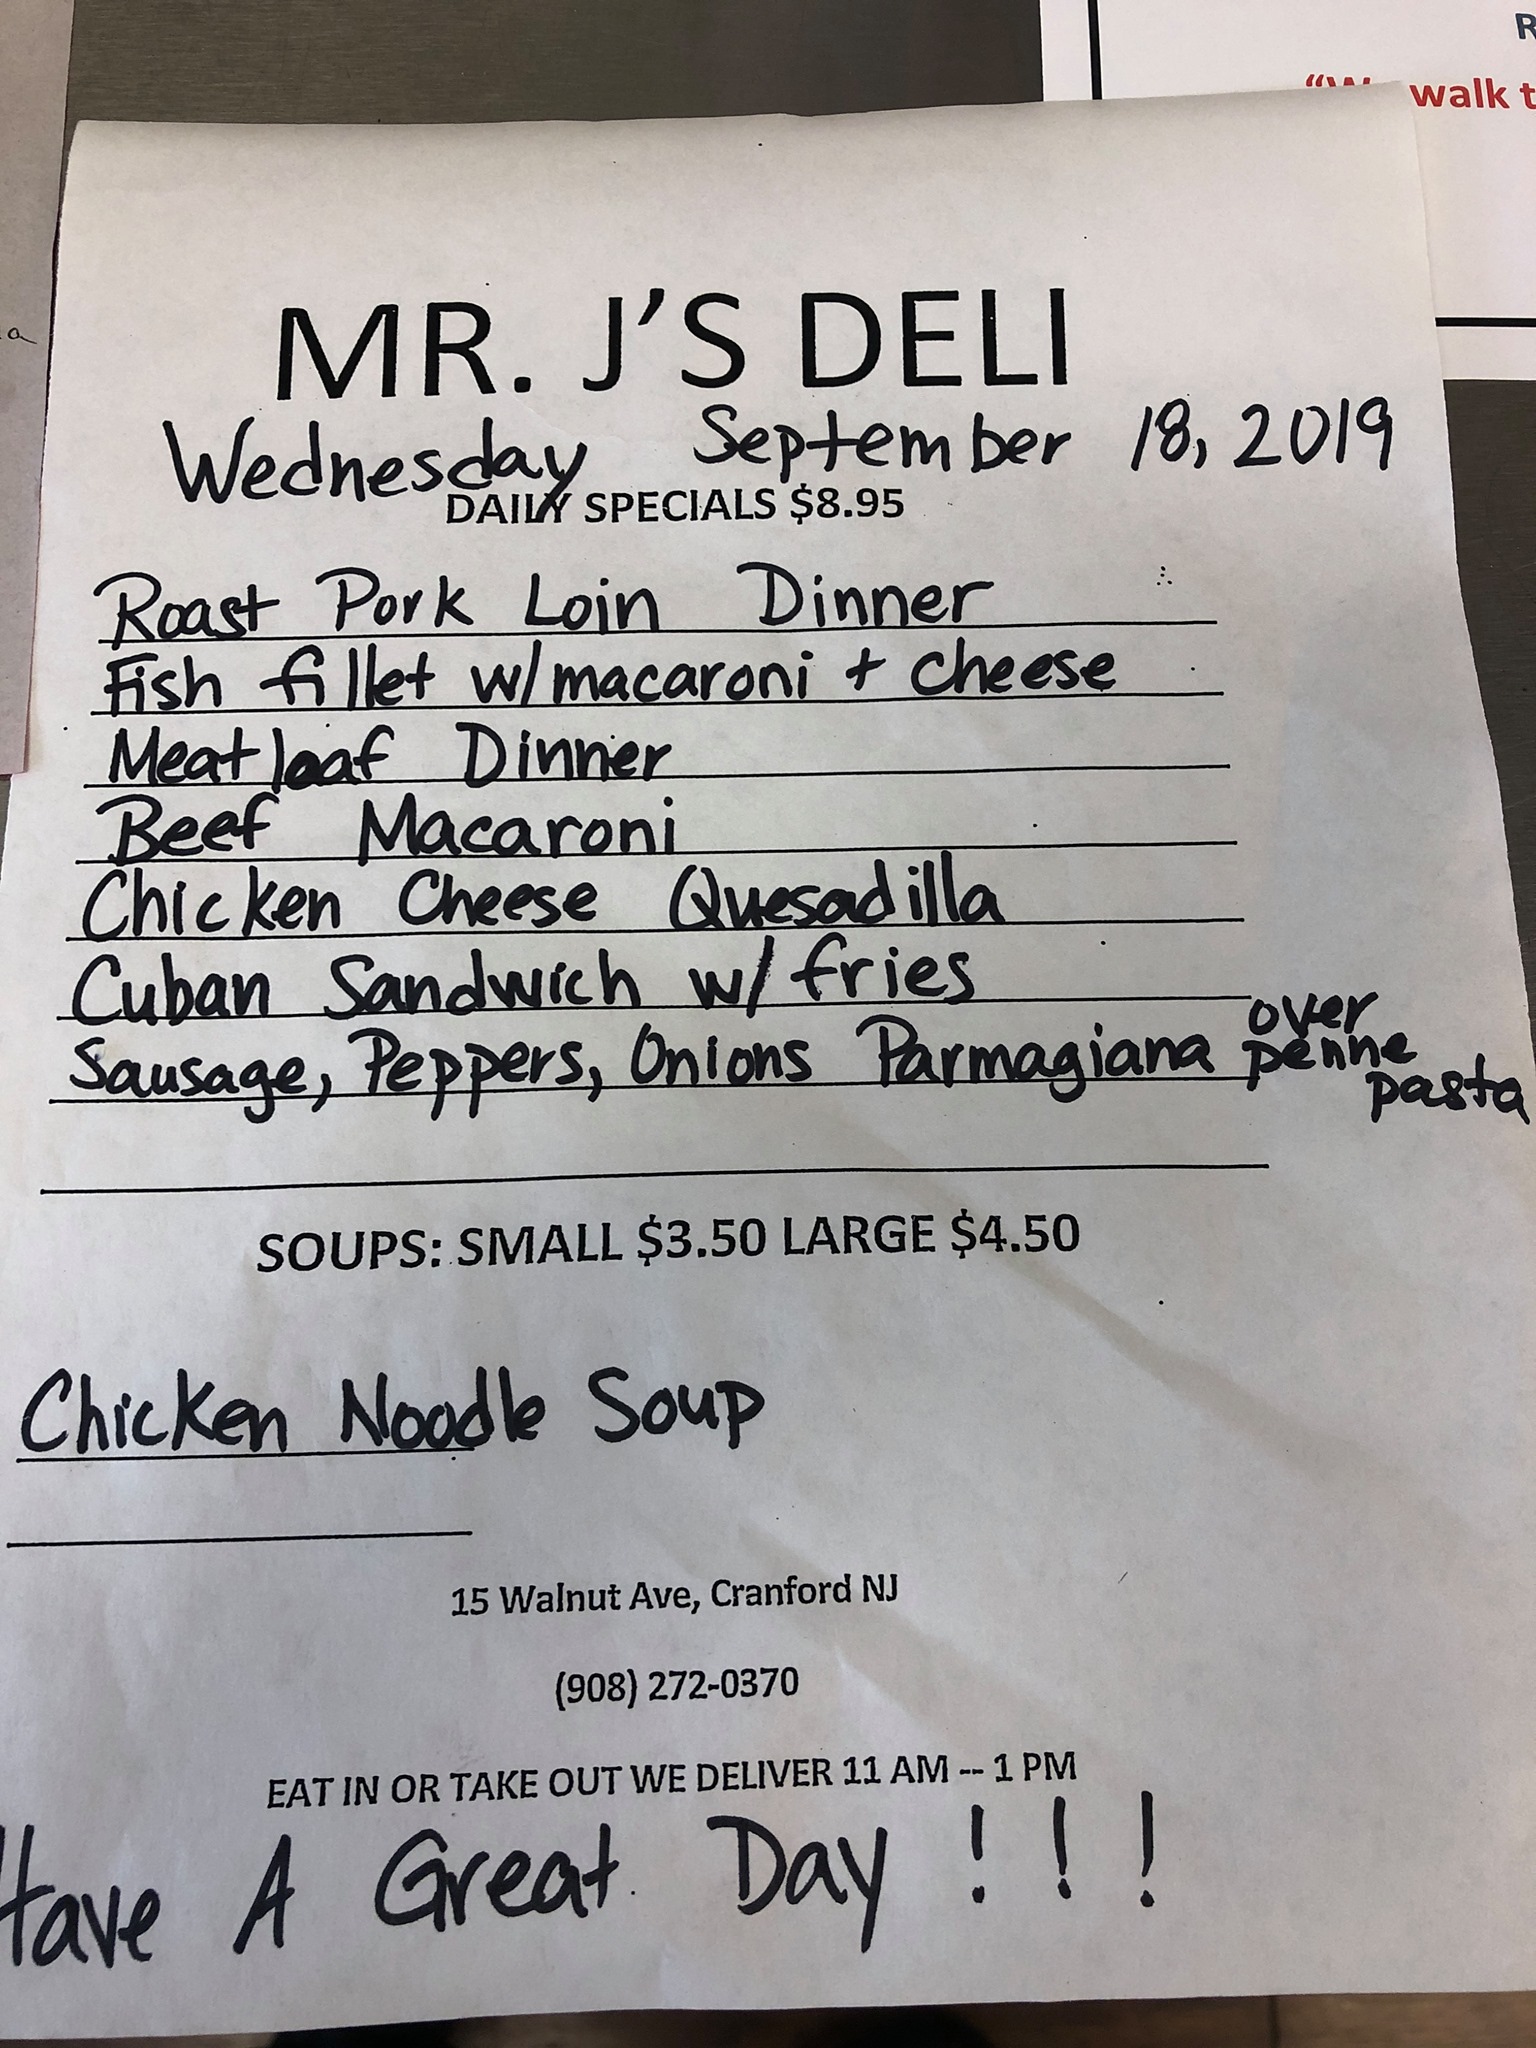 R
walk t
a
MR. J'S DELI
Wednesday September 18, 2019
DAILY SPECIALS $8.95
Roast Pork Loin Dinner
Fish fillet w/macaroni + cheese
Meatloaf Dinner
Beef Macaroni
Chicken Cheese Quesadilla
Cuban Sandwich w/ fries
Sausage, Peppers, Onions Parmagiana over penne pasta
SOUPS: SMALL $3.50 LARGE $4.50
Chicken Noodle Soup
15 Walnut Ave, Cranford NJ
(908) 272-0370
EAT IN OR TAKE OUT WE DELIVER 11 AM -- 1 PM
Have A Great Day ! ! !